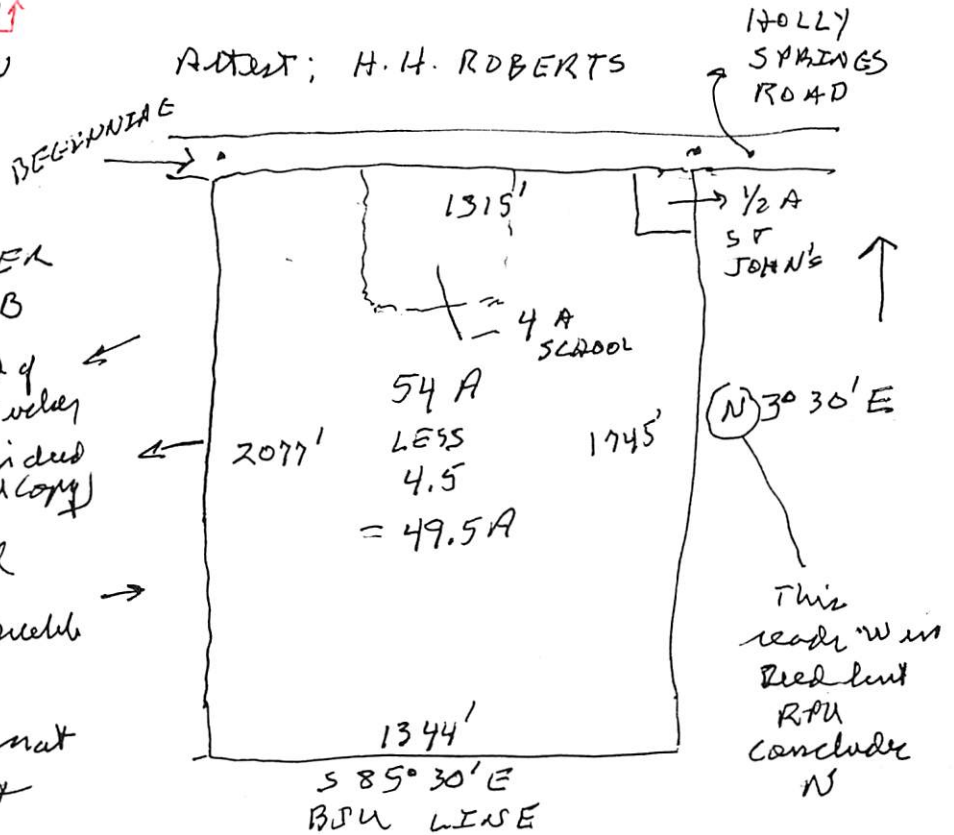 Attest; H.H. ROBERTS
HOLLY
SPRINGS
ROAD
BEGINNING
1315'
1/2 A
ST
JOHN'S
4 A
SCHOOL
ER
B
54 A
LESS
4.5
= 49.5 A
2077'
1745'
N 3° 30' E
This
reads "W in
Deed but
RPU
concludes
N
not
1344'
S 85° 30' E
BSU LINE